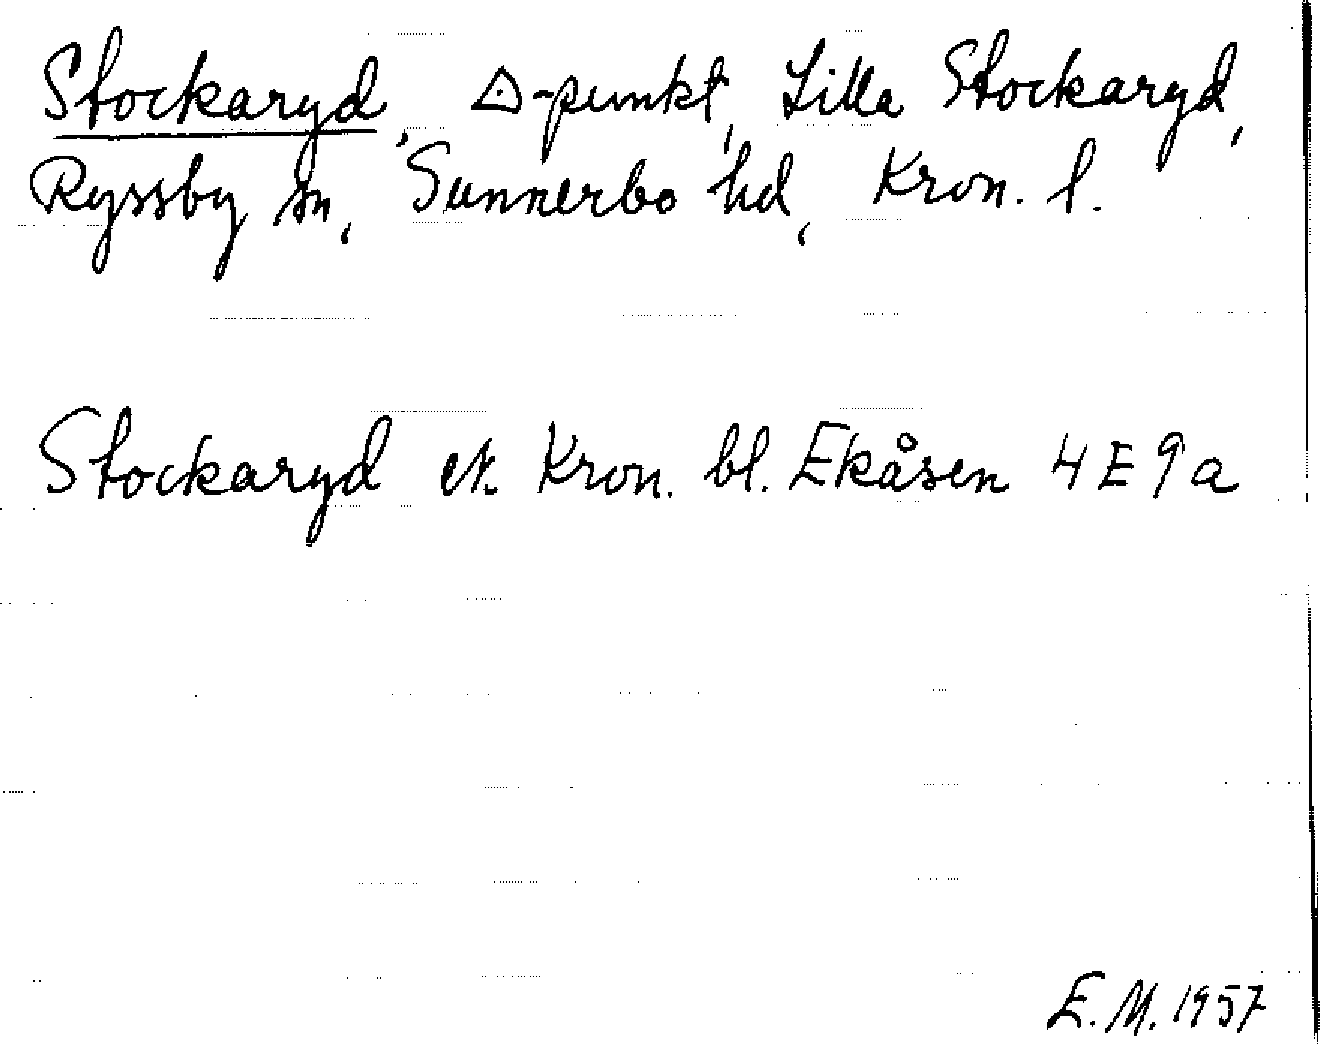 Stockaryd, △-punkt, Lilla Stockaryd,
Ryssby sn, Sunnerbo hd, Kron. l.
Stockaryd ek. Kron. bl. Ekåsen 4E9a
E.M. 1957